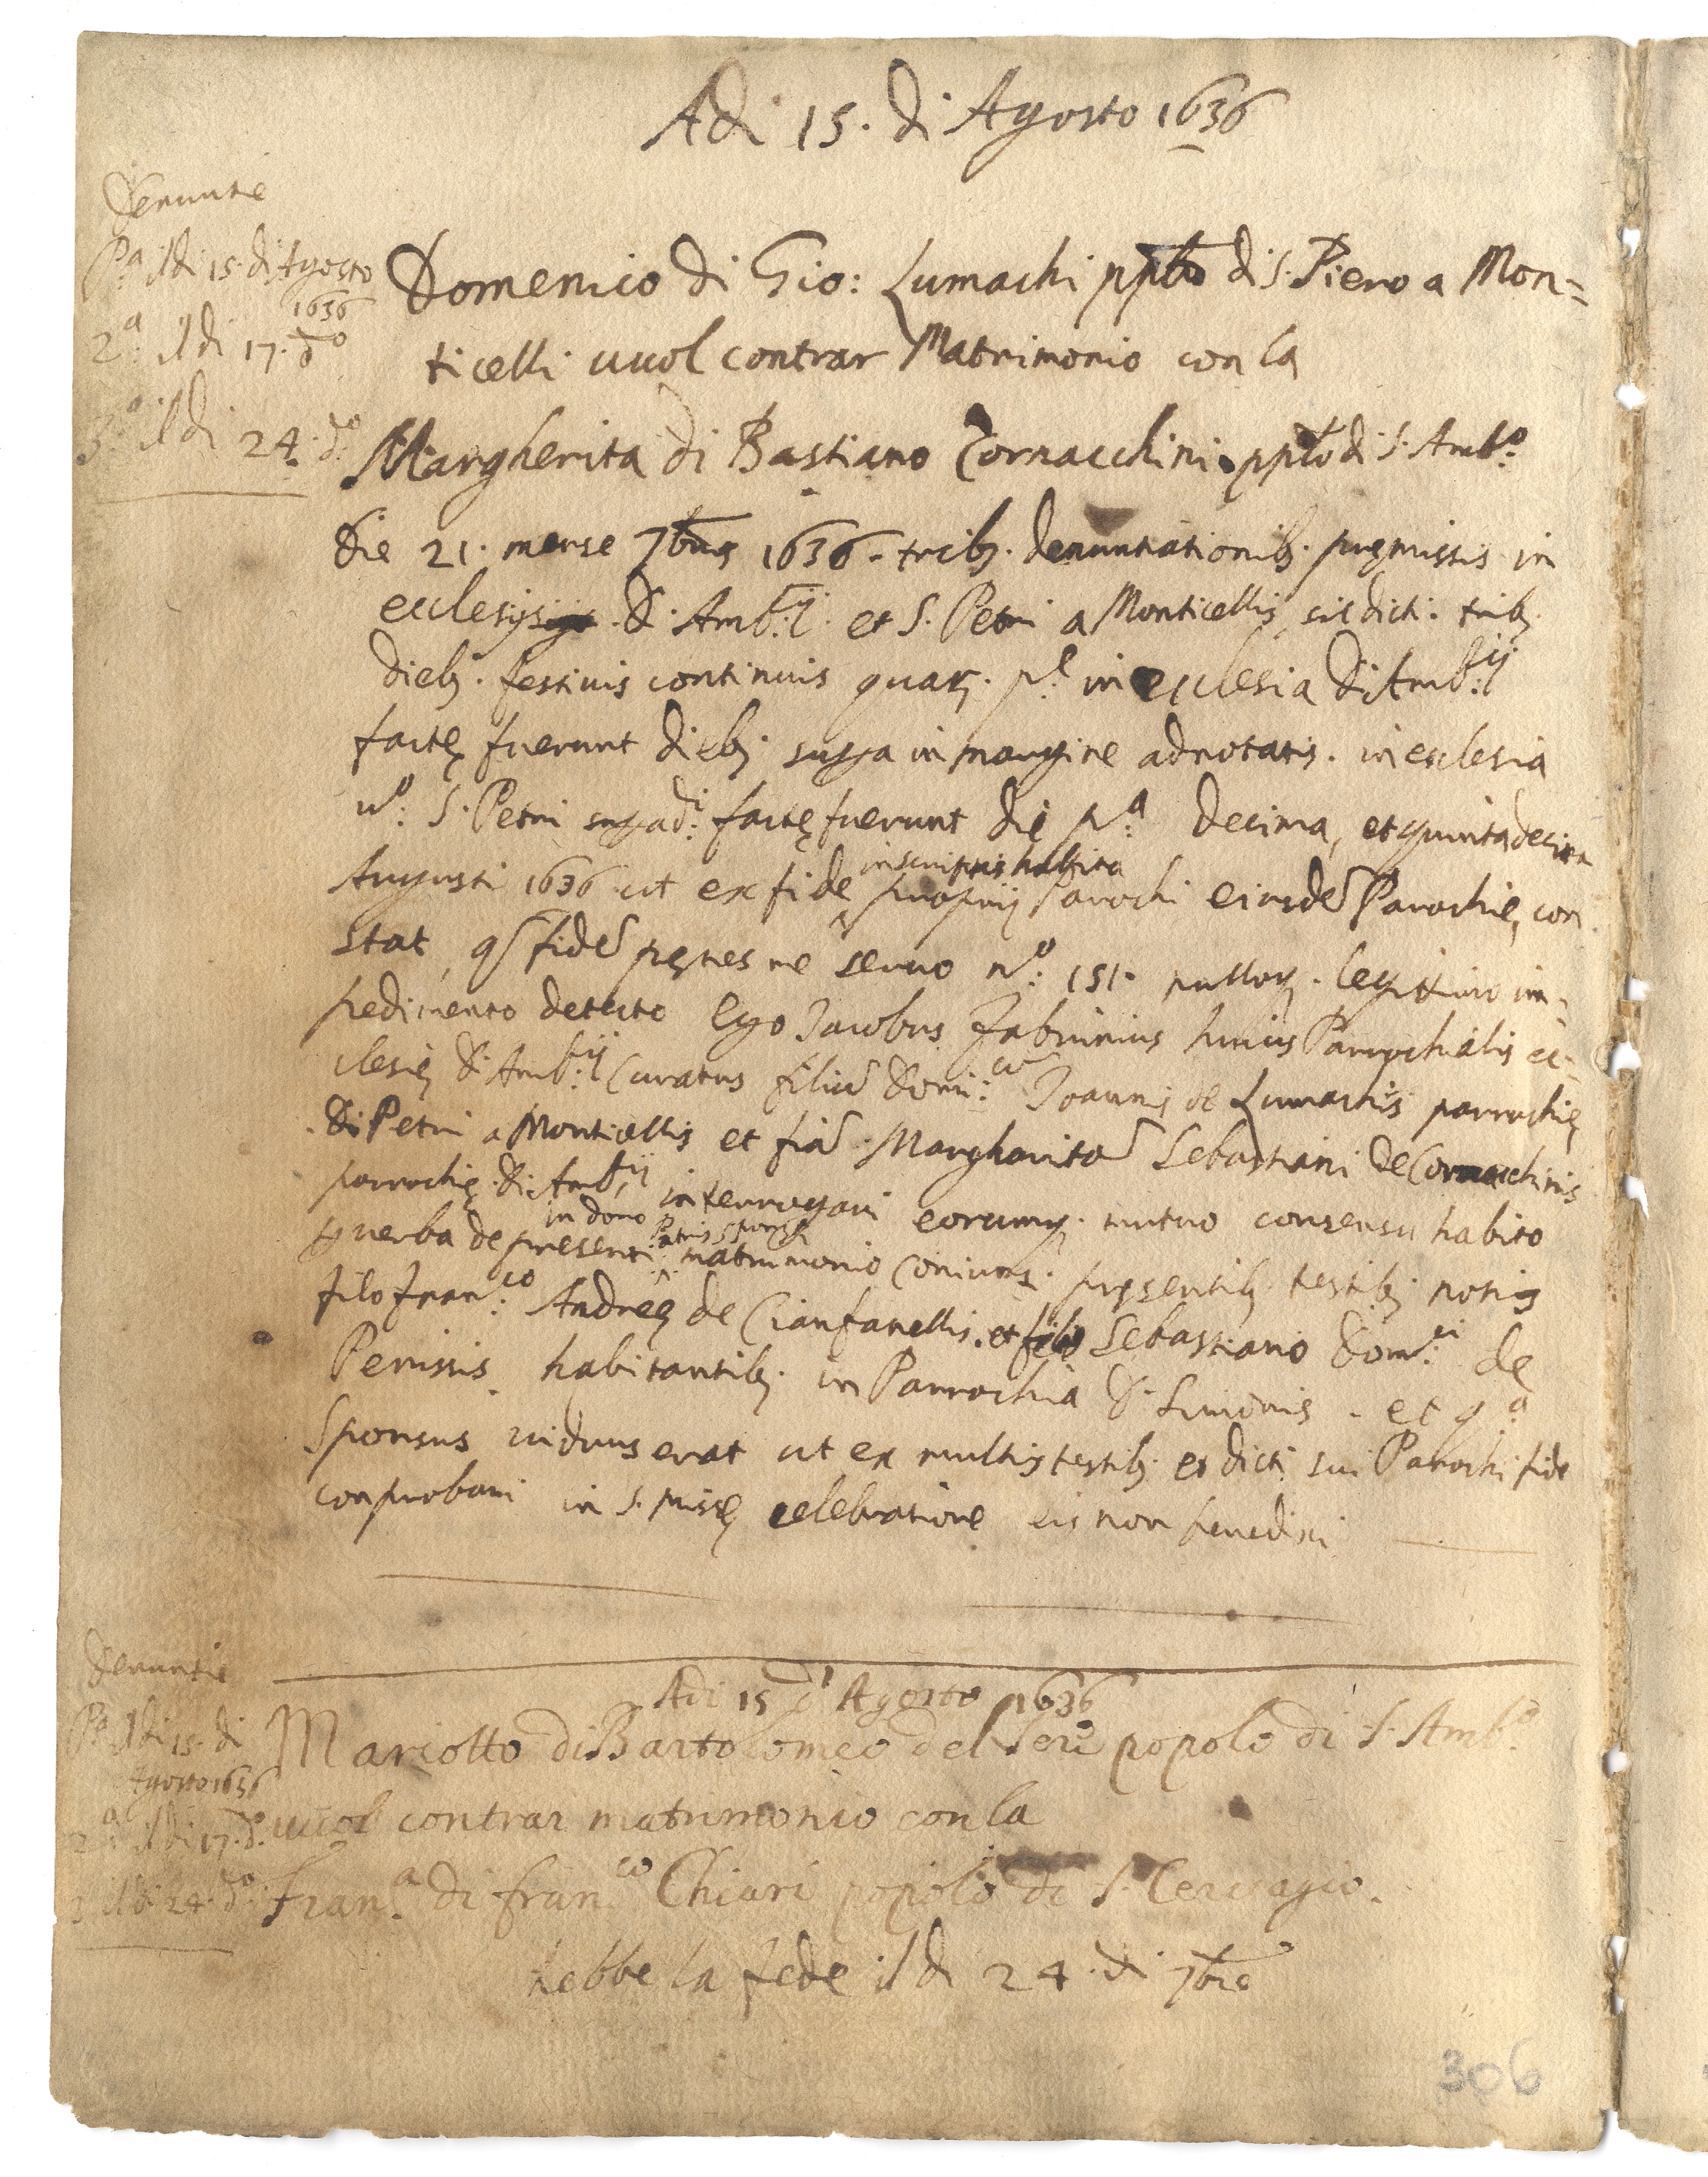 Adi 15. di Agosto 1636
Denuntie
Pª il di 15. di Agosto
1636
2ª il di 17. do
3º il di 24. do
Domenico di Gio: Lumachi pplo di S. Piero a Mon=
ticelli uuol contrar Matrimonio con la
Margherita di Bastiano Cornacchini pplo di S. Ambº
Die 21. mense 7bris 1636. trib; denuntationib; pręmissis in
ecclesijs D. Amb:ij et S. Petri a Monticellis, sic dicti: trib;
dieb; festiuis continuis quar; in ecclesia Di Amb:ij
factę fuerunt dieb; supra in margine adnotatis. in ecclesia
uº: S. Petri suprad: factę fuerunt die pª decima, et quinta decima
Augusti 1636 ut ex fide in scriptis habita proprij Parochi eiusdē Parochię, con
stat, q̄ fidē penes me seruo nº: 151. nulloq; legittimo im=
pedimento detecto Ego Jacobus Fabrinius huius Parochialis ec=
clesię D. Amb:ij Curatus filiū Dom:cū Joannis de Lumachis parrochię
Di Petri a Monticellis et fiā Margharitā Sebastiani de Cornacchinis
parrochię Di Amb:ij interrogaui eorumq; mutuo consensu habito
p uerba de presenti in domo Patris sponsę matrimonio coniunx; pręsentib; testib; notis
filo Fran:co Andreę de Cianfanellis. et filo Sebastiano Dom:ci de
Perissis habitantib; in Parrochia D. Simonis. et qª
Sponsus uiduus erat ut ex multis testib; et dicti sui Parochi fide
conprobaui in S. missę celebratione eis non benedixi
Denuntie
Pª il di 15. di
Agosto 1636
2ª il di 17. do
3 il di 24. do
Adi 15 di Agosto 1636
Mariotto di Bartolomeo del Seri popolo di S. Ambº
uuol contrar matrimonio con la
Franª di franco Chiari popolo di S. Ceruagio.
hebbe la fede il di 24. di 7bre
306